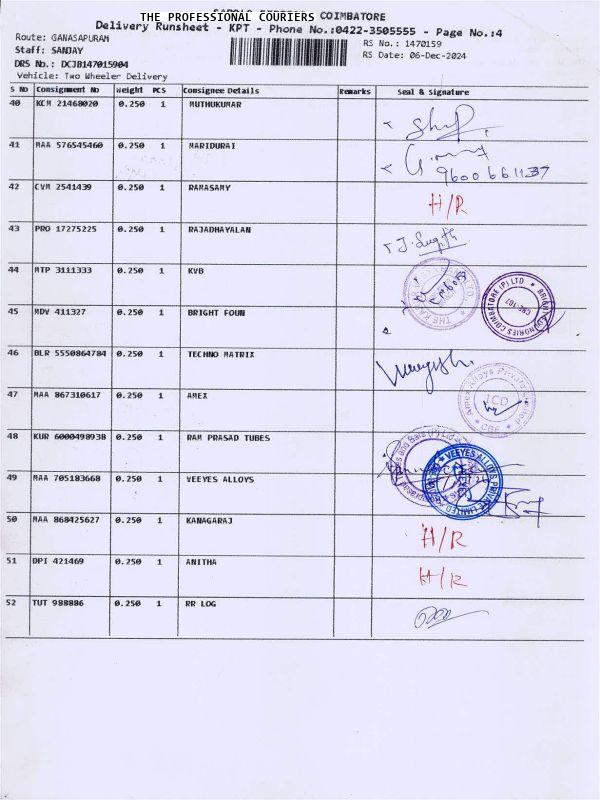 THE PROFESSIONAL COURIERS COIMBATORE
Delivery Runsheet - KPT - Phone No.:0422-3505555 - Page No.:4
Route: GANASAPURAM
Staff: SANJAY
DRS No.: DCJB147015904
Vehicle: Two Wheeler Delivery
RS No.: 1470159
RS Date: 06-Dec-2024
S No Consignment No Weight PCS Consignee Details Remarks Seal & Signature
40 KCM 21468020 0.250 1 MUTHUKUMAR
41 MAA 576545460 0.250 1 MARIDURAI
9600661137
42 CVM 2541439 0.250 1 RAMASAMY H/R
43 PRO 17275225 0.250 1 RAJADHAYALAN
44 MTP 3111333 0.250 1 KVB
45 MDV 411327 0.250 1 BRIGHT FOUN
46 BLR 5550864784 0.250 1 TECHNO MATRIX
47 MAA 867310617 0.250 1 AMEX
Amex Alloys Private Limited
ICD
CBE
48 KUR 6000498938 0.250 1 RAM PRASAD TUBES
49 MAA 705183668 0.250 1 VEEYES ALLOYS
VEEYES ALLOYS PRIVATE LIMITED
50 MAA 868425627 0.250 1 KANAGARAJ H/R
51 DPI 421469 0.250 1 ANITHA H/R
52 TUT 988886 0.250 1 RR LOG